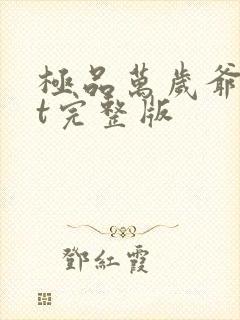 極品萬歲爺
t完整版
鄧紅霞